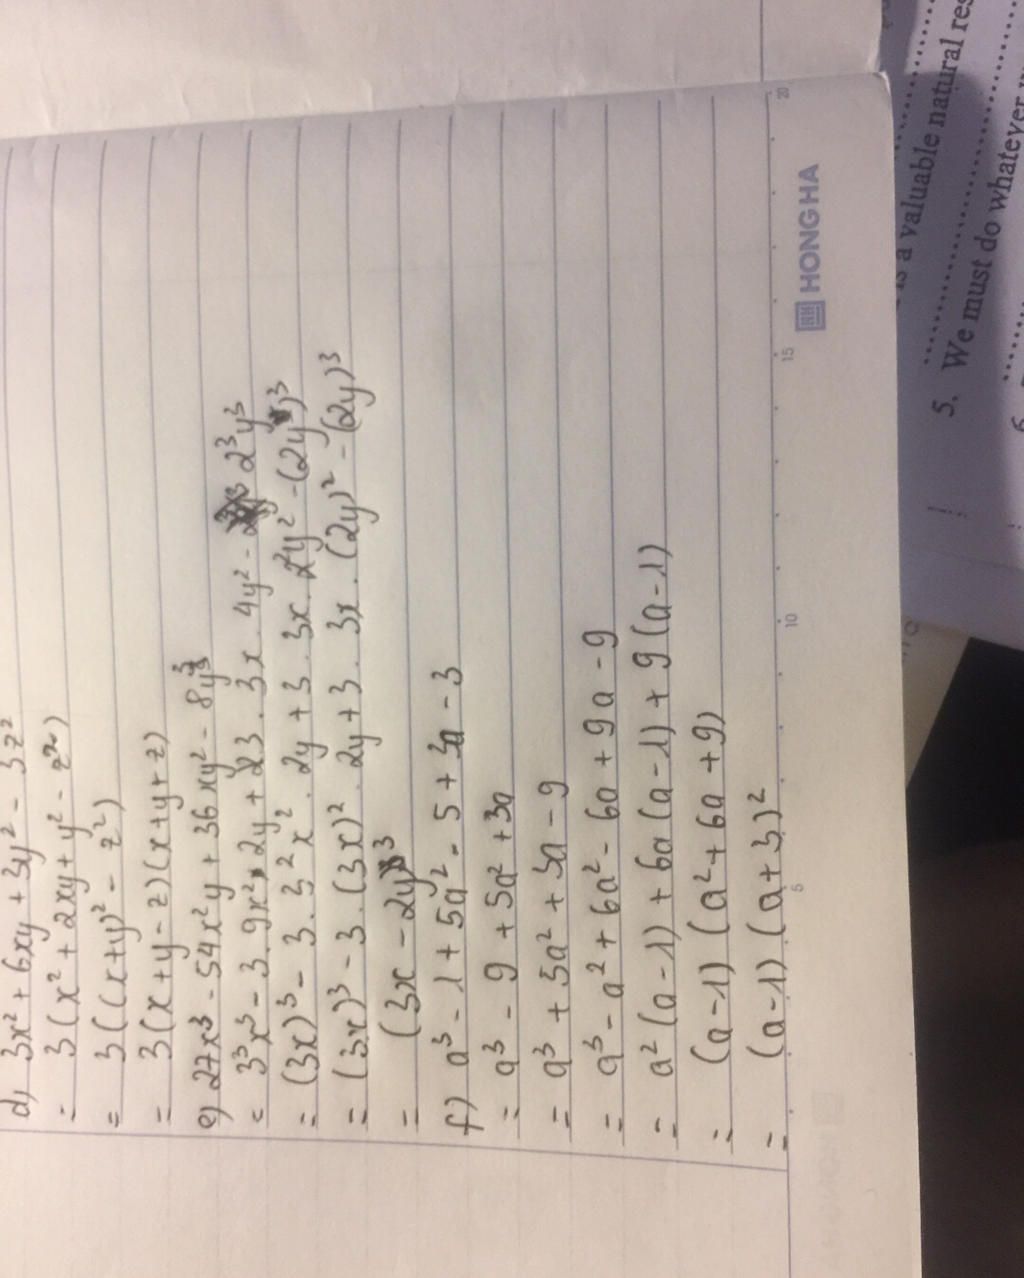 d) 3x² + 6xy + 3y² - 3z²
= 3(x² + 2xy + y² - z²)
= 3((x+y)² - z²)
= 3(x+y-z)(x+y+z)
e) 27x³ - 54x²y + 36xy² - 8y³
= 3³x³ - 3.9x².2y + 3.3x.4y² - 2³y³
= (3x)³ - 3.3²x².2y + 3.3x.2²y² - (2y)³
= (3x)³ - 3.(3x)².2y + 3.3x.(2y)² - (2y)³
= (3x - 2y)³
f) a³ - 1 + 5a² - 5 + 3a - 3
= a³ - 9 + 5a² + 3a
= a³ + 5a² + 3a - 9
= a³ - a² + 6a² - 6a + 9a - 9
= a²(a-1) + 6a(a-1) + 9(a-1)
= (a-1)(a² + 6a + 9)
= (a-1).(a+3)²
5 10 15 20
HONG HA
is a valuable natural
5. We must do whatever
6